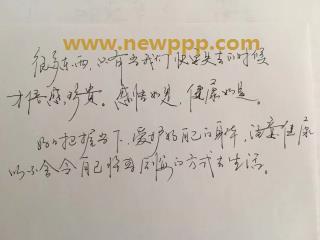 www.newppp.com
很多东西,只有当我们快要失去的时候
才倍感珍贵。感情如是,健康如是。
好好把握当下,爱护好自己的身体,注意健康
以不会令自己将要后悔的方式去生活。